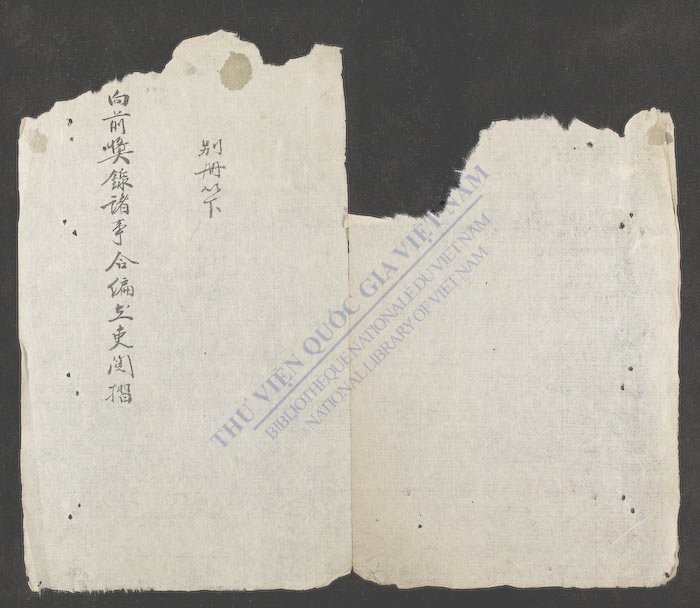 別冊以下
向前獎錄諸事合編並吏閣摺
THƯ VIỆN QUỐC GIA VIỆT NAM
BIBLIOTHÈQUE NATIONALE DU VIETNAM
NATIONAL LIBRARY OF VIETNAM